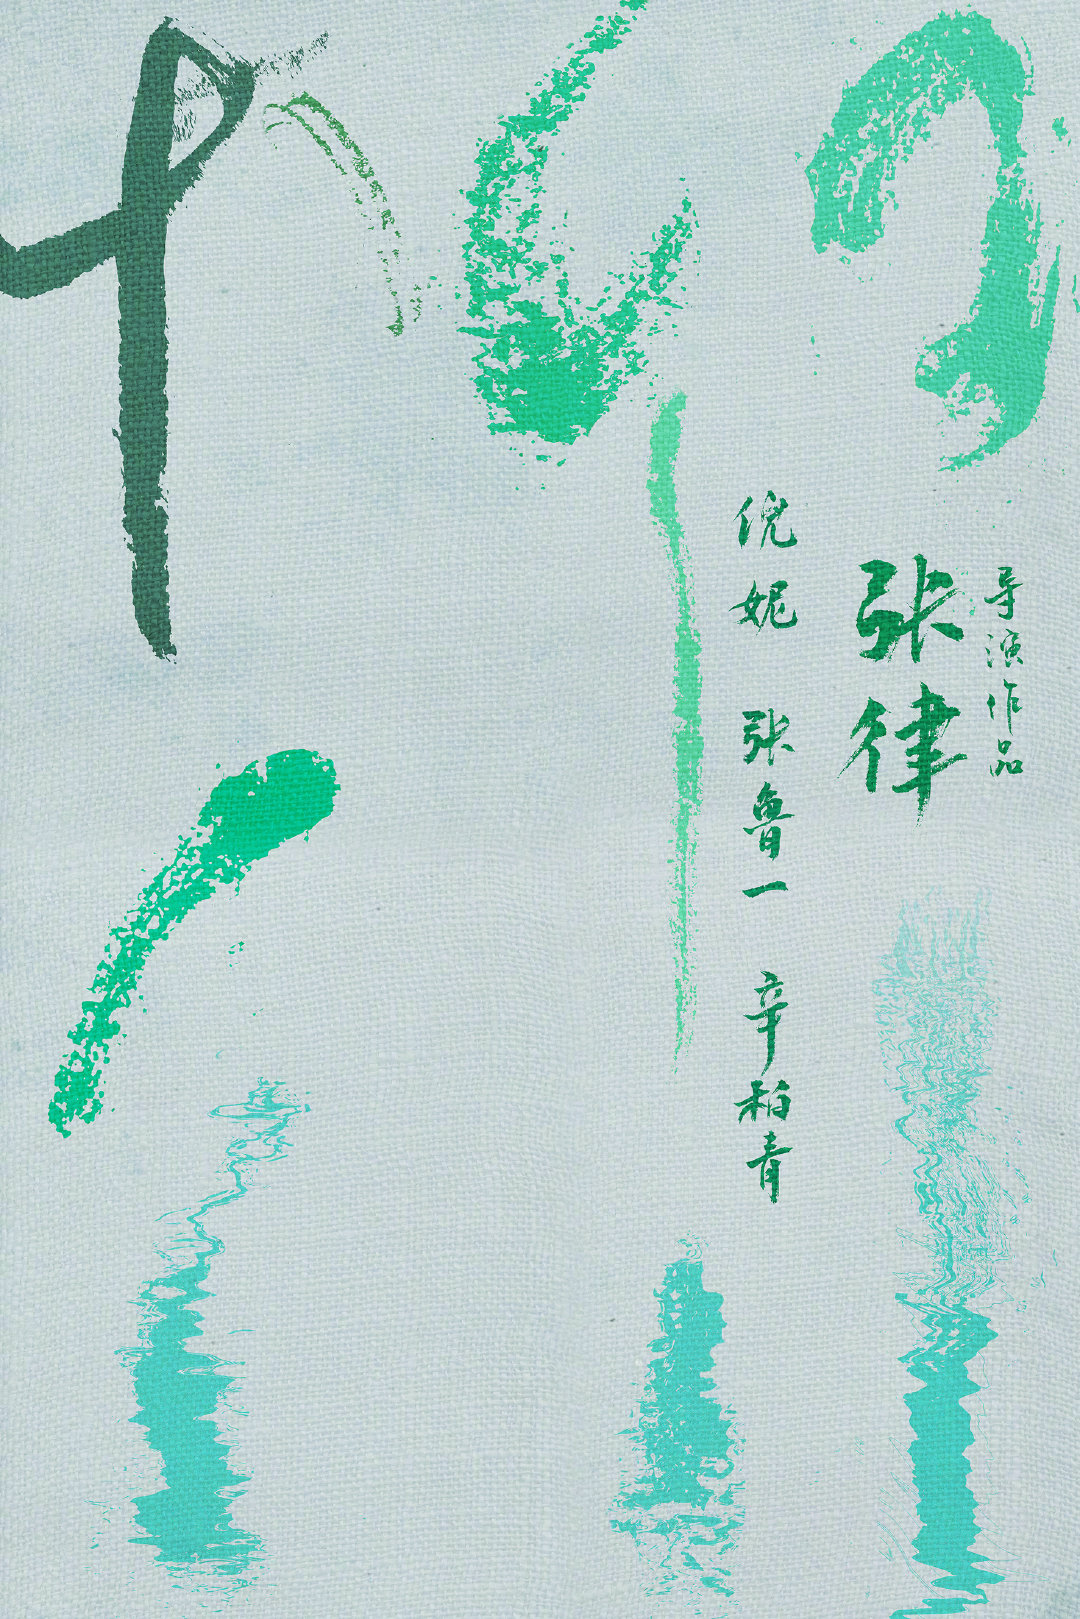 导演作品
张律
倪妮
张鲁一
辛柏青